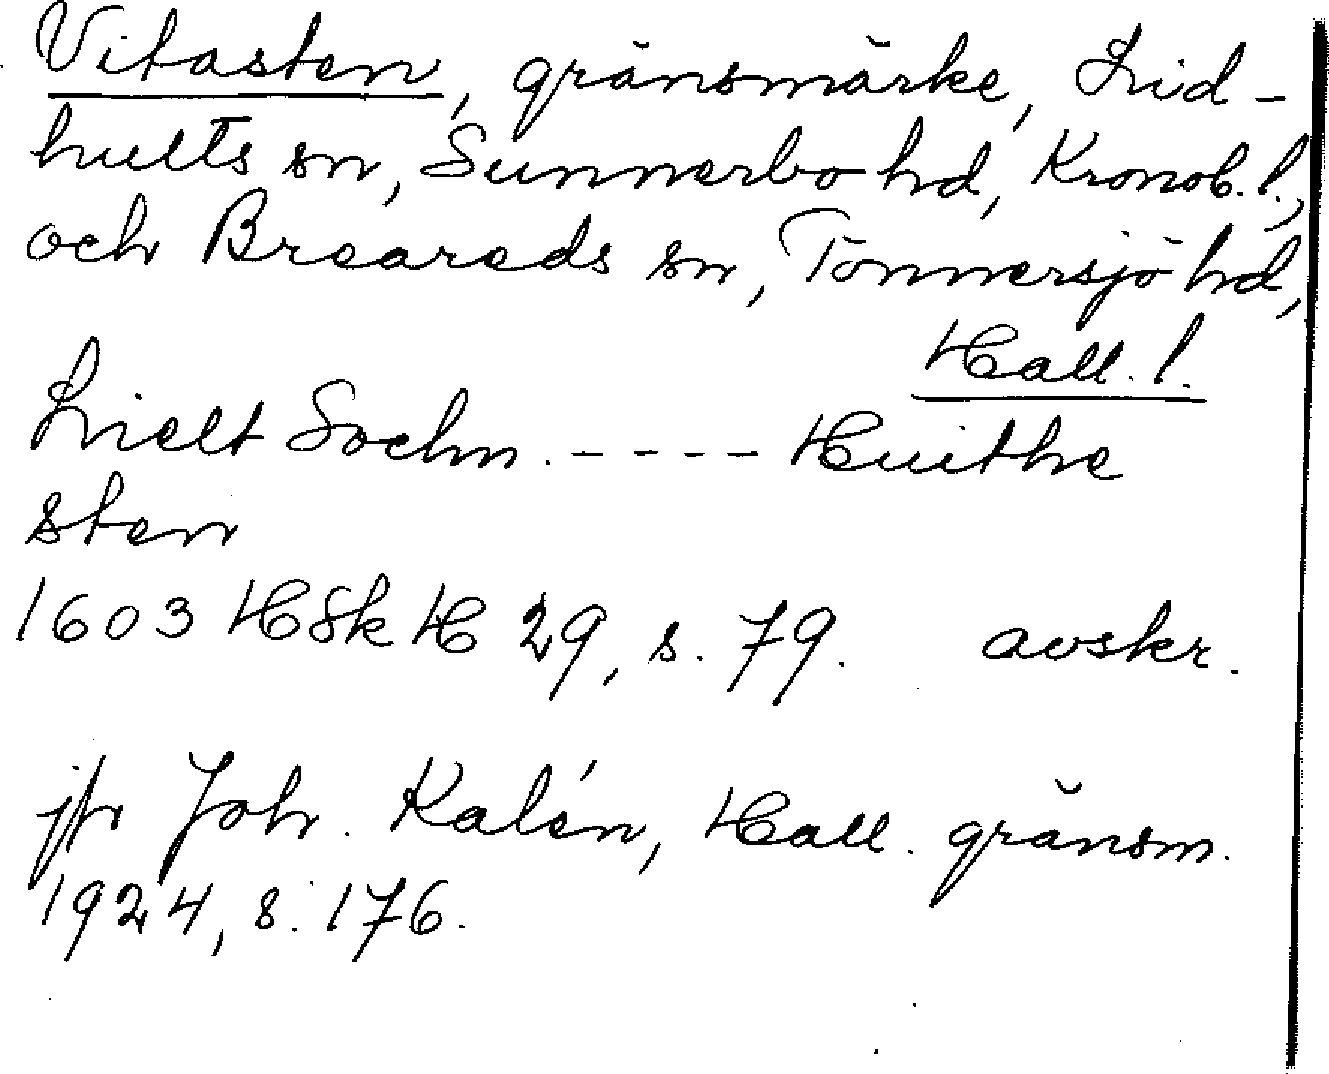 Vitasten, gränsmärke, Lid-
hults sn, Sunnerbo hd, Kronob. l.,
och Breareds sn, Tönnersjö hd,
Hall. l.
Lielt Sochn. ---- Huithe
sten
1603 HSk H 29, s. 79. avskr.
jfr Joh. Kalén, Hall. gränsm.
1924, s. 176.